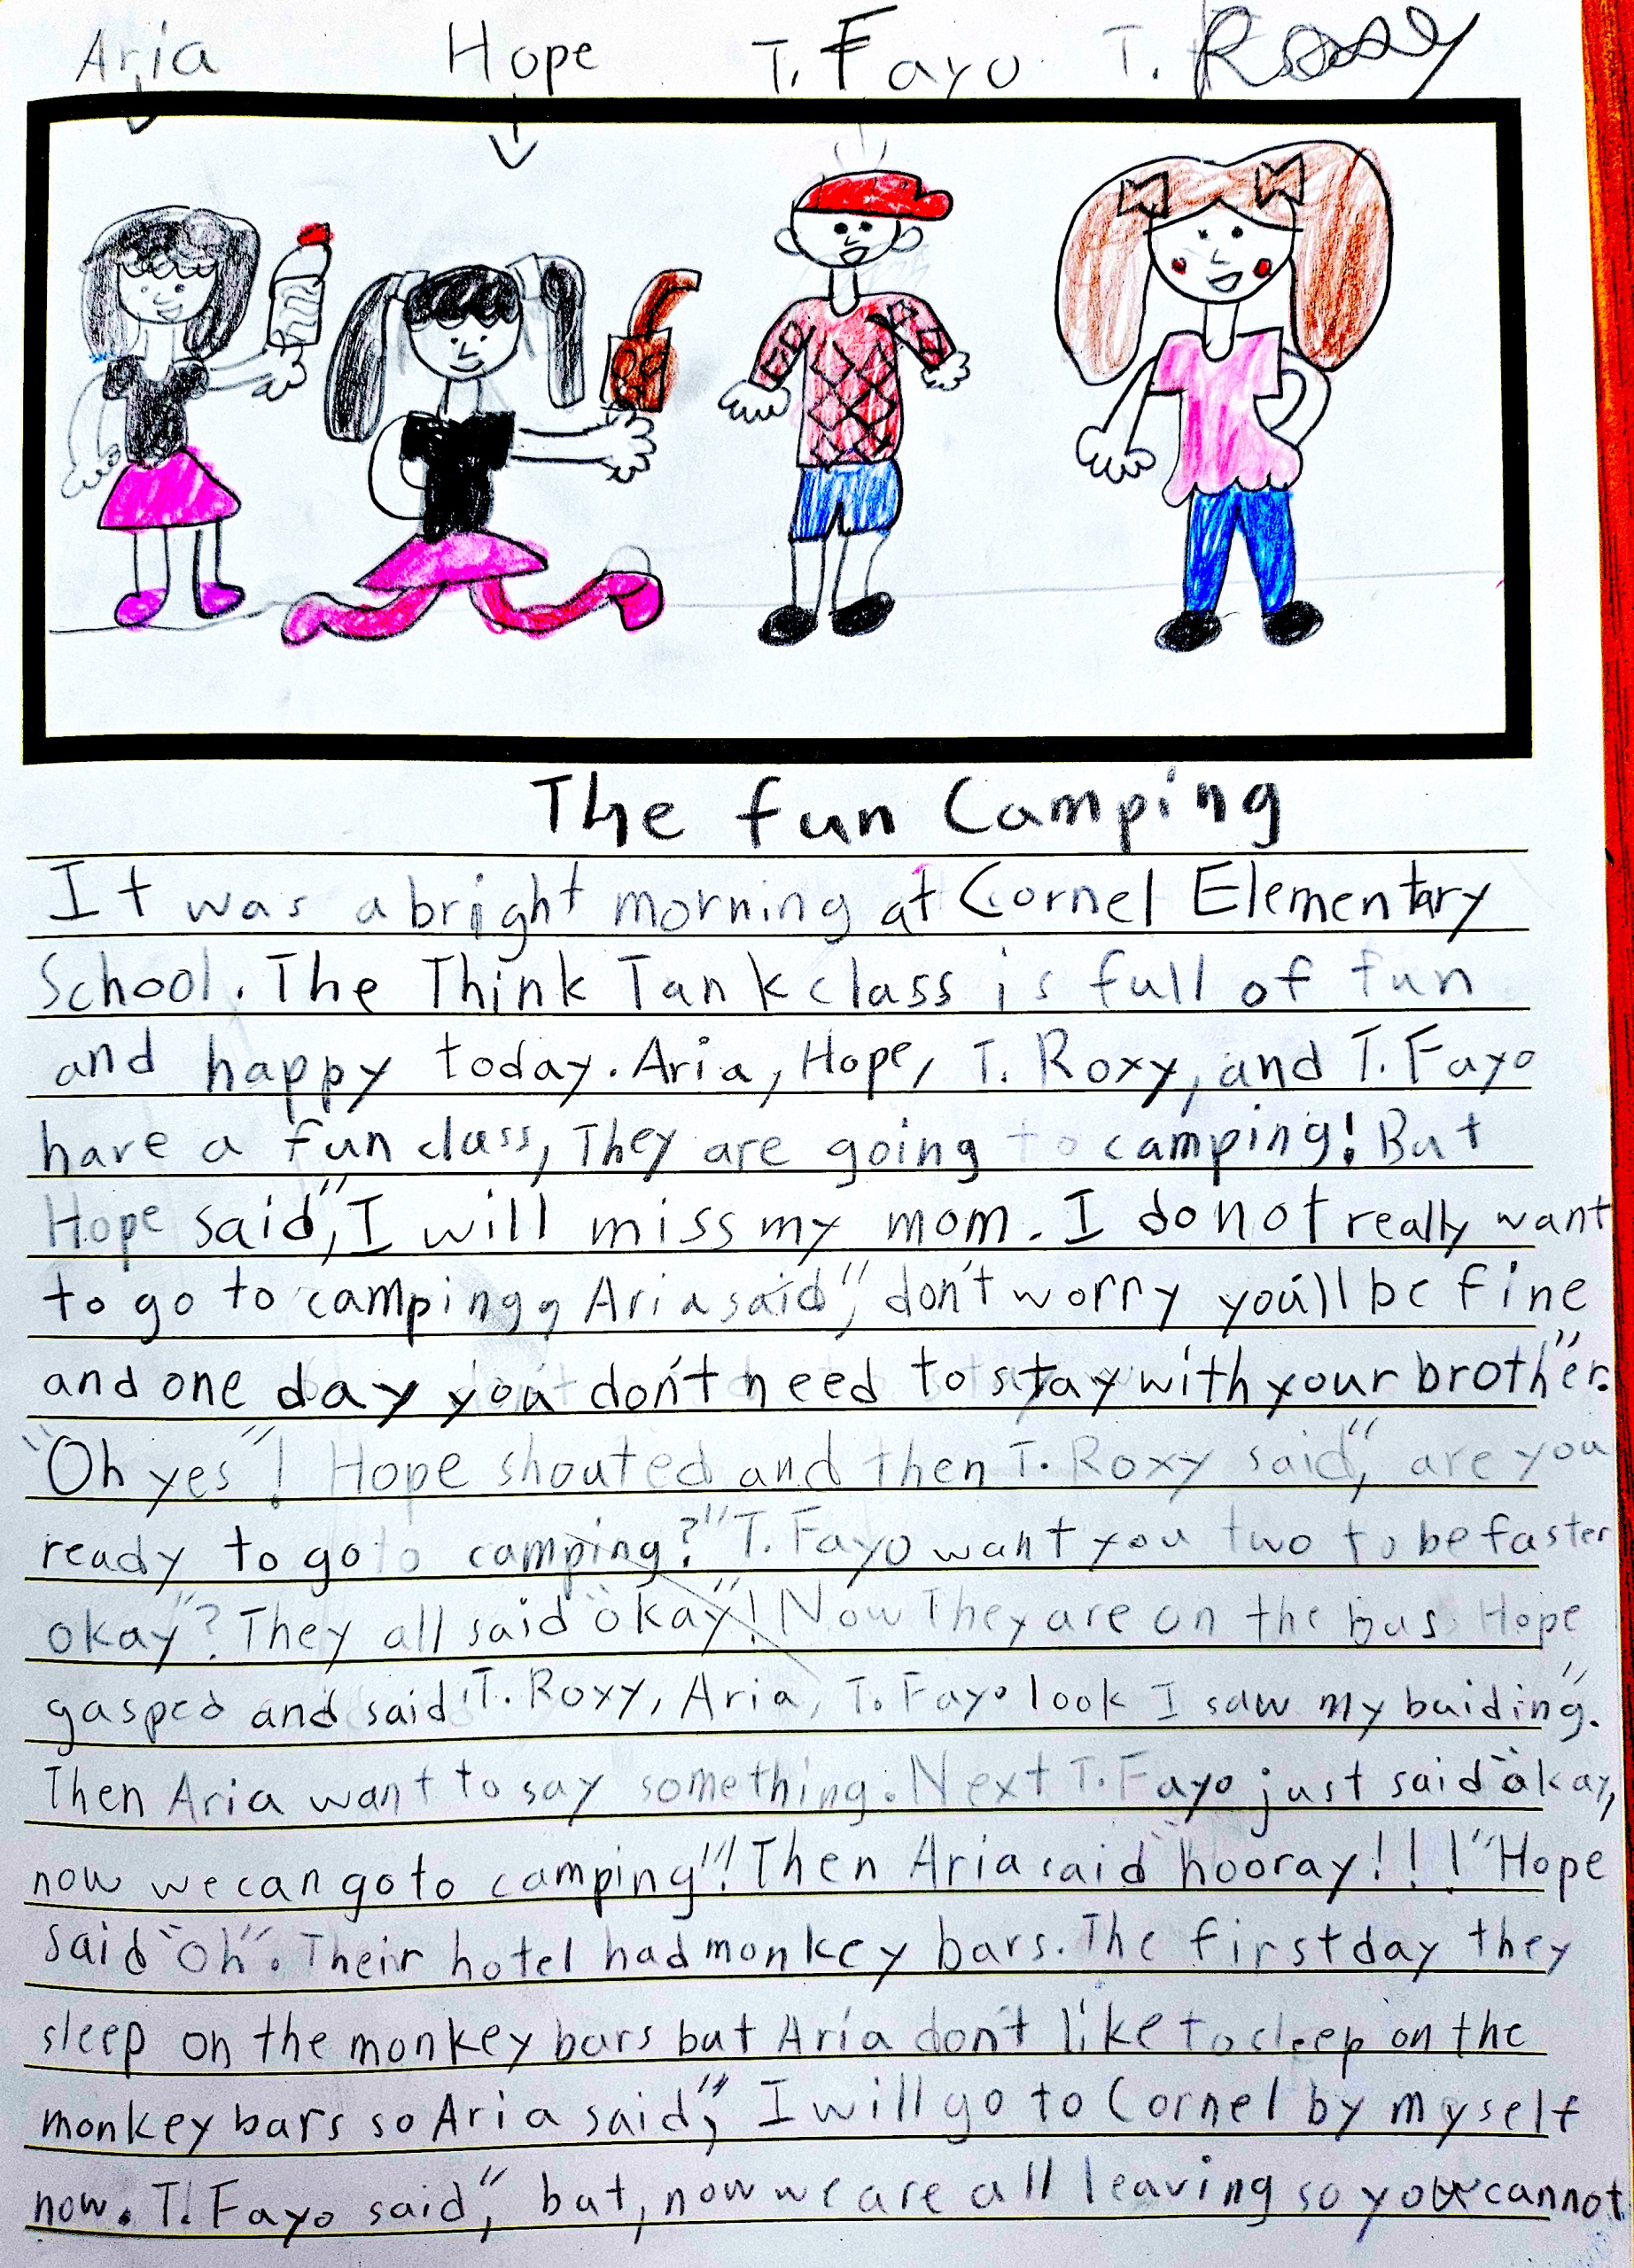 Aria Hope T. Fayo T. Roxy
The fun Camping
It was a bright morning at Cornel Elementary
School. The Think Tank class is full of fun
and happy today. Aria, Hope, T. Roxy, and T. Fayo
have a fun class, They are going to camping! But
Hope said," I will miss my mom. I do not really want
to go to camping, Aria said", don't worry you'll be fine
and one day you don't need to stay with your brother."
"Oh yes"! Hope shouted and then T. Roxy said", are you
ready to go to camping?" T. Fayo want you two to be faster
okay"? They all said "okay"! Now They are on the bus Hope
gasped and said "T. Roxy, Aria, T. Fayo look I saw my buiding".
Then Aria want to say something. Next T. Fayo just said "okay,
now we can go to camping"!! Then Aria said "hooray!!!" Hope
said "oh". Their hotel had monkey bars. The first day they
sleep on the monkey bars but Aria don't like to sleep on the
monkey bars so Aria said", I will go to Cornel by myself
now. T. Fayo said", but, now we are all leaving so you cannot